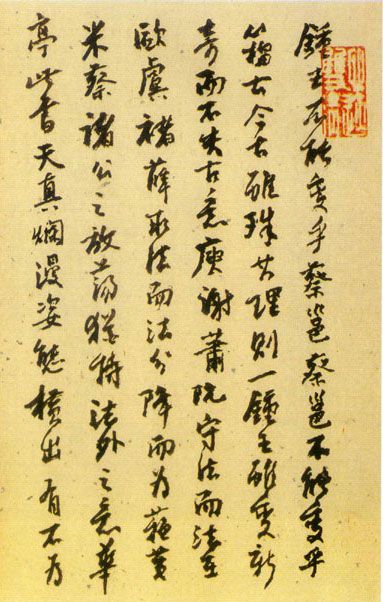 鍾王不能變乎蔡邕蔡邕不能變乎
籀古今古雖殊其理則一鍾王雖變新
奇而不失古意庾謝蕭阮守法而法在
歐虞褚薛取法而法分降而為蘇黃
米蔡諸公之放蕩猶持法外之意華
亭此書天真爛漫姿態橫出有不為